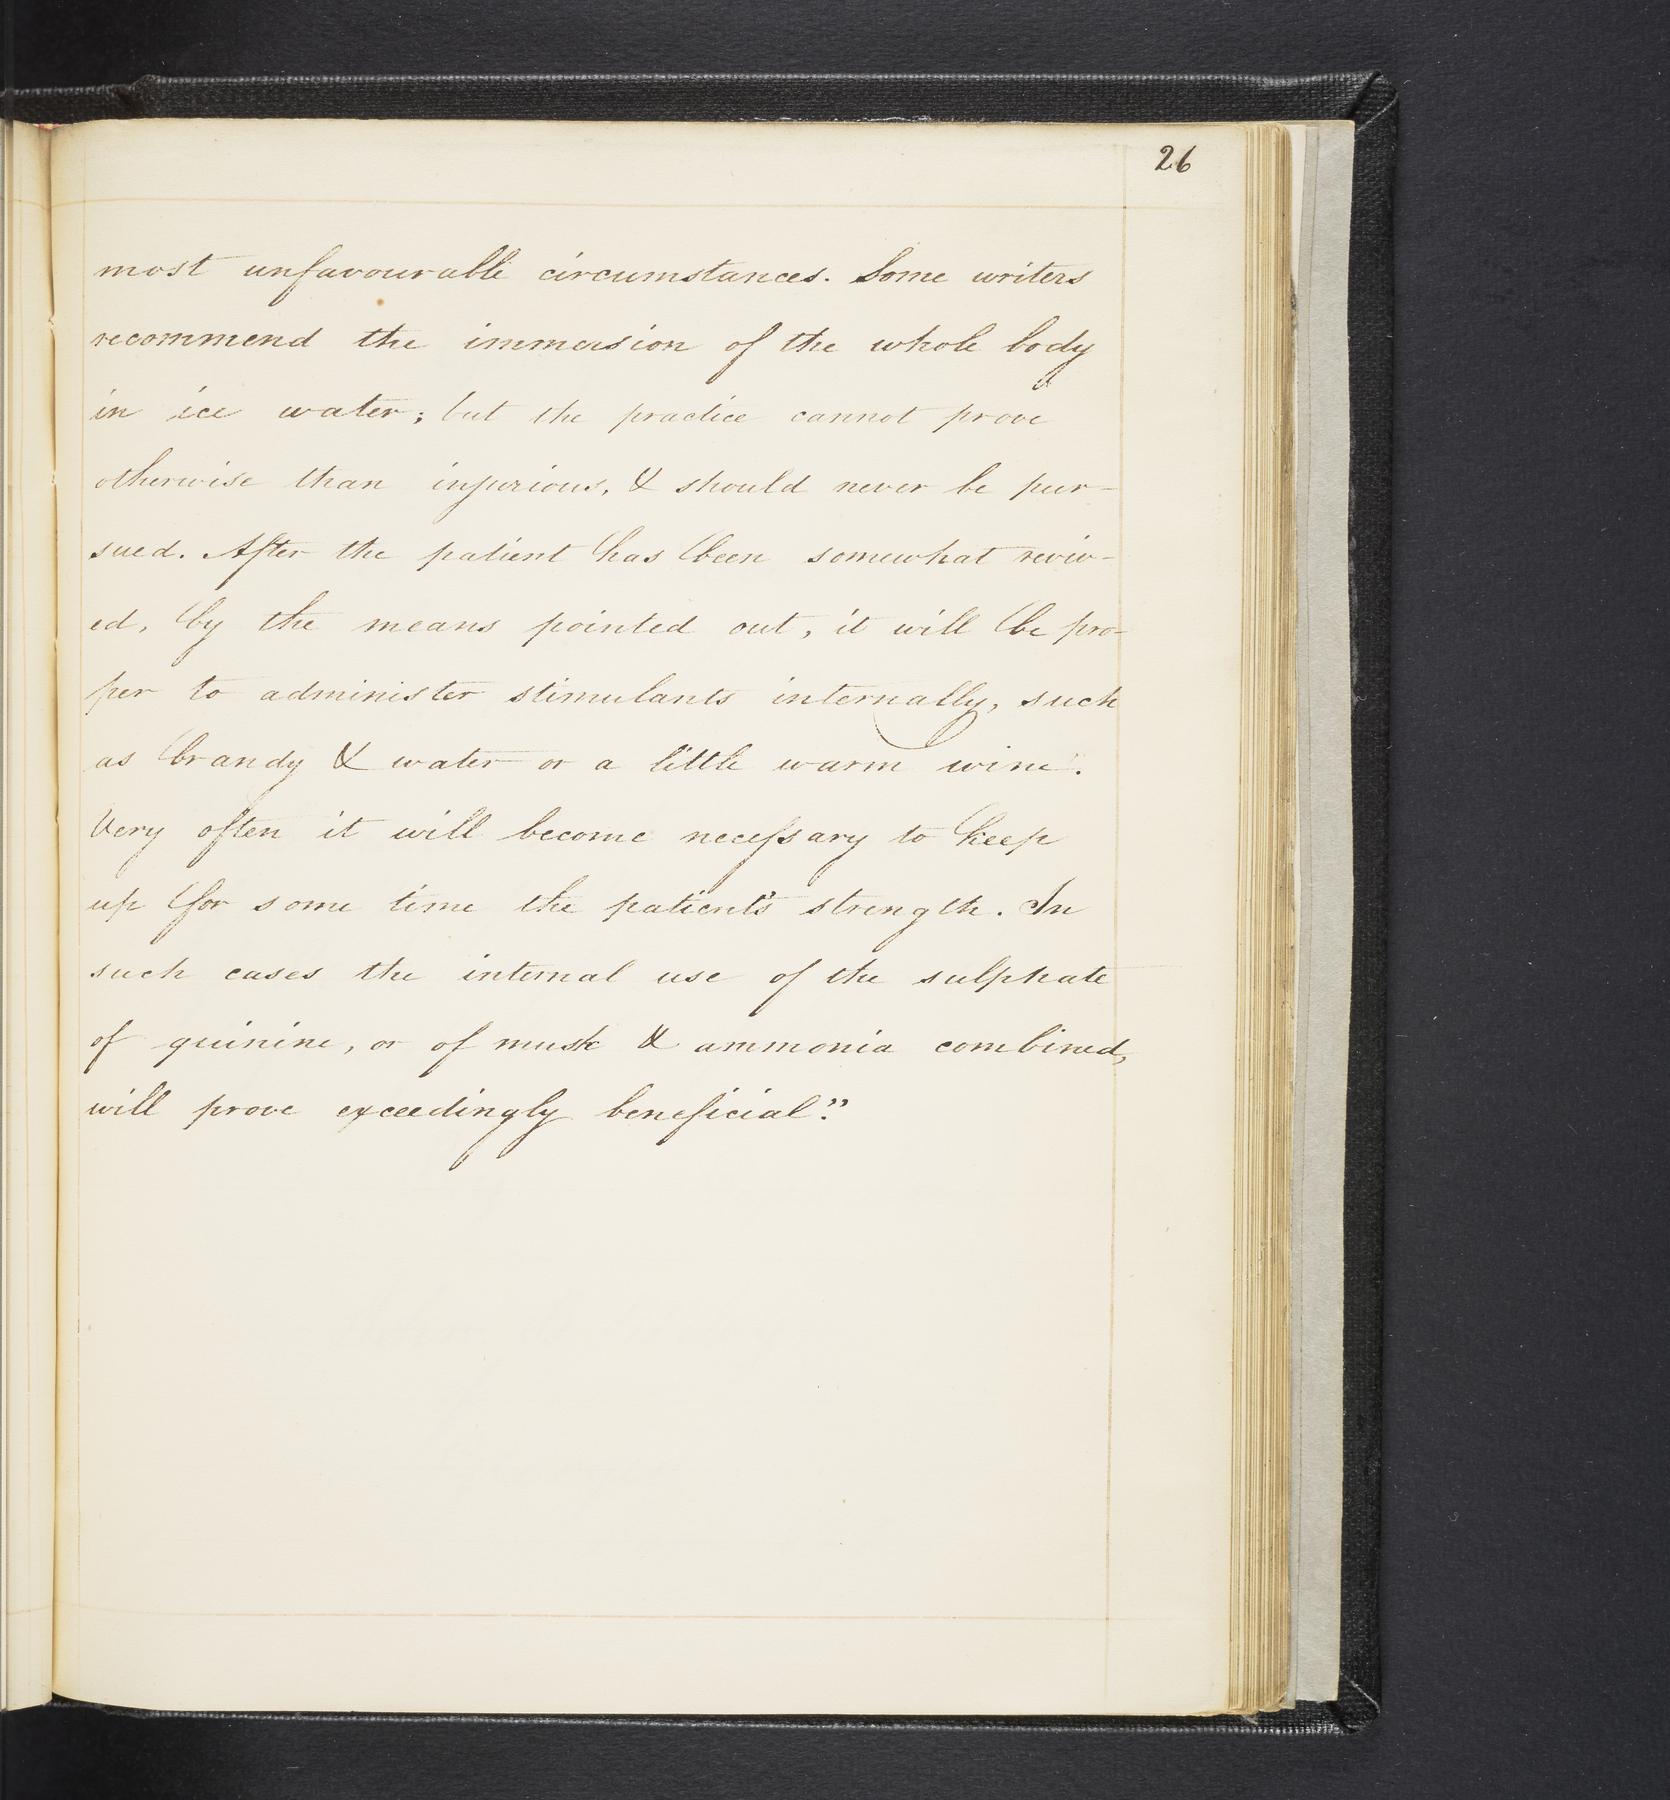 26
most unfavourable circumstances. Some writers
recommend the immersion of the whole body
in ice water; but the practice cannot prove
otherwise than injurious, & should never be pur-
sued. After the patient has been somewhat reviv-
ed, by the means pointed out, it will be pro-
per to administer stimulants internally, such
as brandy & water or a little warm wine.
Very often it will become necessary to keep
up for some time the patient's strength. In
such cases the internal use of the sulphate
of quinine, or of musk & ammonia combined,
will prove exceedingly beneficial."